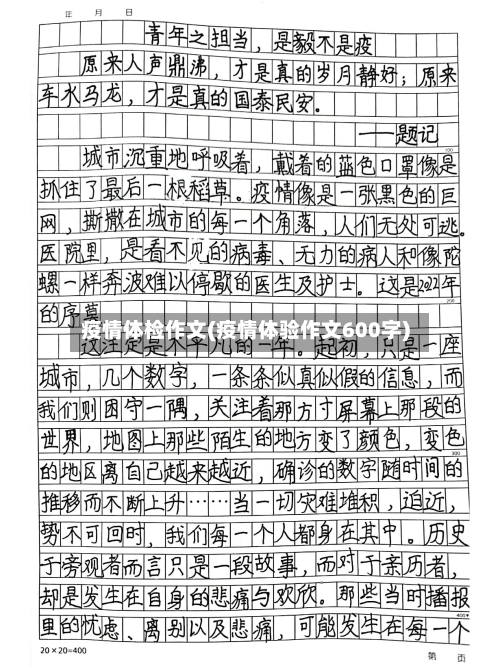 年 月 日
青年之担当，是毅不是疫
原来人声鼎沸，才是真的岁月静好；原来
车水马龙，才是真的国泰民安。
——题记
100
城市沉重地呼吸着，戴着的蓝色口罩像是
抓住了最后一根稻草。疫情像是一张黑色的巨
网，撕撒在城市的每一个角落，人们无处可逃。
医院里，是看不见的病毒、无力的病人和像陀
螺一样奔波难以停歇的医生及护士。这是2022年
200
的序幕
疫情体检作文(疫情体验作文600字)
这注定是不平凡的一年。起初，只是一座
城市，几个数字，一条条似真似假的信息，而
我们则困守一隅，关注着那方寸屏幕上那段的
世界，地图上那些陌生的地方变了颜色，变色
300
的地区离自己越来越近，确诊的数字随时间的
推移而不断上升……当一切灾难堆积，迫近，
势不可回时，我们每一个人都身在其中。历史
于旁观者而言只是一段故事，而对于亲历者，
却是发生在自身的悲痛与欢欣。那些当时播报
400
里的忧虑、离别以及悲痛，可能发生在每一个
20×20=400
第 页